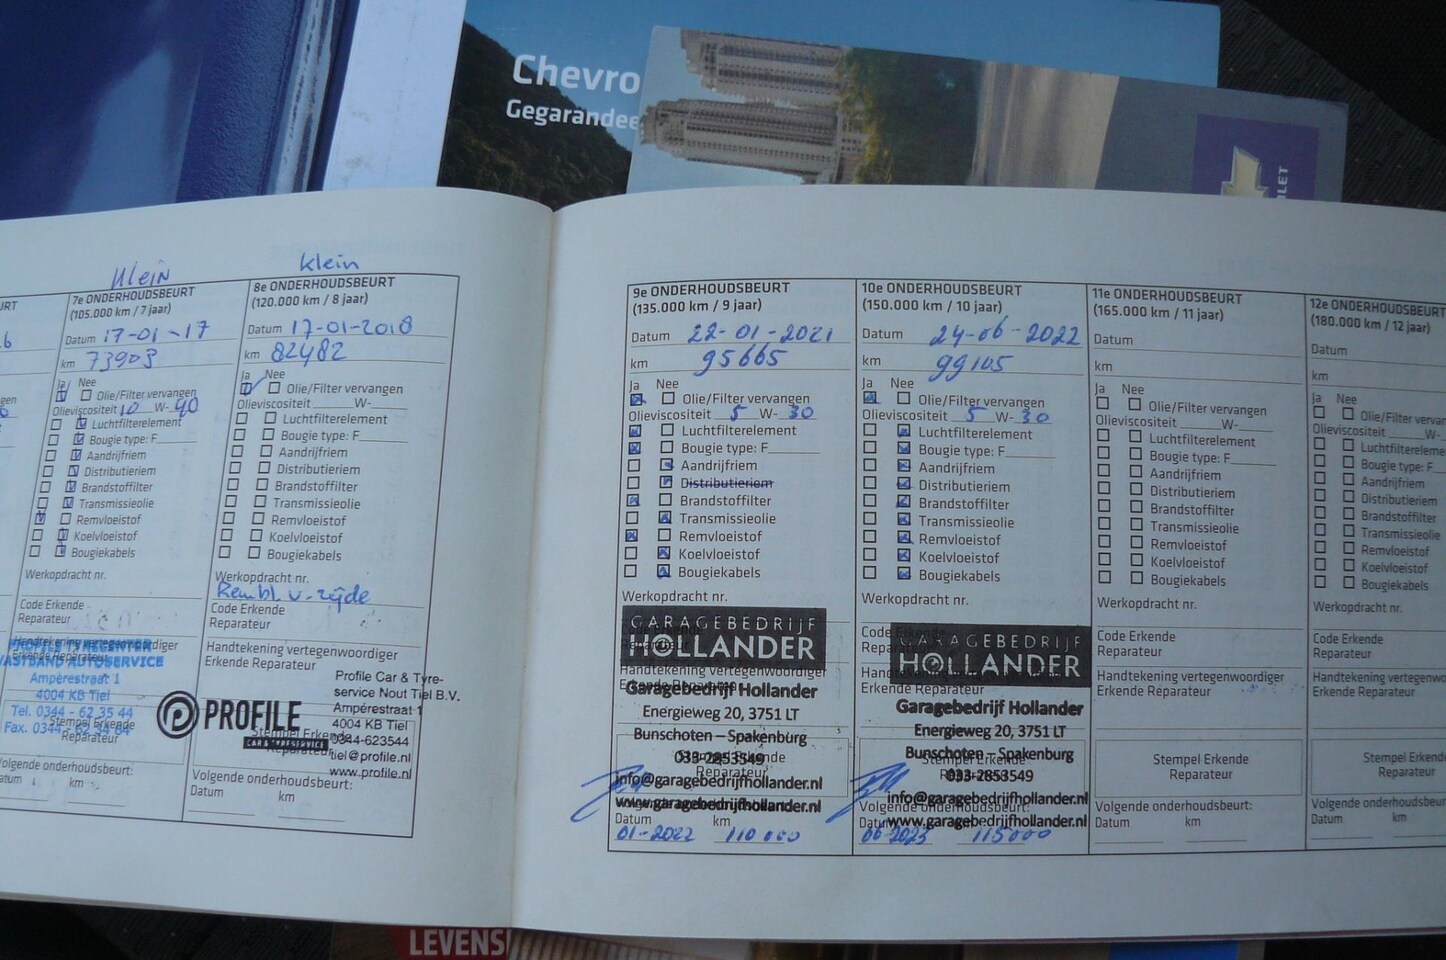 Chevro
Gegarandee
LET
Klein
7e ONDERHOUDSBEURT
(105.000 km / 7 jaar)
Datum 17-01-17
km 73903
Ja Nee
Olie/Filter vervangen
Olieviscositeit 10 W- 40
Luchtfilterelement
Bougie type: F
Aandrijfriem
Distributieriem
Brandstoffilter
Transmissieolie
Remvloeistof
Koelvloeistof
Bougiekabels
Werkopdracht nr.
Code Erkende
Reparateur
Handtekening vertegenwoordiger
Erkende Reparateur
VASTBAND AUTOSERVICE
Ampèrestraat 1
4004 KB Tiel
Tel. 0344 - 62 35 44
Fax. 0344 -
Stempel Erkende
Reparateur
Volgende onderhoudsbeurt:
Datum km
klein
8e ONDERHOUDSBEURT
(120.000 km / 8 jaar)
Datum 17-01-2018
km 82482
Ja Nee
Olie/Filter vervangen
Olieviscositeit W-
Luchtfilterelement
Bougie type: F
Aandrijfriem
Distributieriem
Brandstoffilter
Transmissieolie
Remvloeistof
Koelvloeistof
Bougiekabels
Werkopdracht nr.
Rembl. v. zijde
Code Erkende
Reparateur
Handtekening vertegenwoordiger
Erkende Reparateur
PROFILE
CAR & TYRESERVICE
Profile Car & Tyre-
service Nout Tiel B.V.
Ampèrestraat 1
4004 KB Tiel
0344-623544
tiel@profile.nl
www.profile.nl
Stempel Erkende
Reparateur
Volgende onderhoudsbeurt:
Datum km
9e ONDERHOUDSBEURT
(135.000 km / 9 jaar)
Datum 22-01-2021
km 95665
Ja Nee
Olie/Filter vervangen
Olieviscositeit 5 W- 30
Luchtfilterelement
Bougie type: F
Aandrijfriem
Distributieriem
Brandstoffilter
Transmissieolie
Remvloeistof
Koelvloeistof
Bougiekabels
Werkopdracht nr.
GARAGEBEDRIJF
HOLLANDER
Handtekening vertegenwoordiger
Garagebedrijf Hollander
Energieweg 20, 3751 LT
Bunschoten – Spakenburg
033-2853549
Reparateur
info@garagebedrijfhollander.nl
www.garagebedrijfhollander.nl
Datum km
01-2022 110000
10e ONDERHOUDSBEURT
(150.000 km / 10 jaar)
Datum 24-06-2022
km 99105
Ja Nee
Olie/Filter vervangen
Olieviscositeit 5 W- 30
Luchtfilterelement
Bougie type: F
Aandrijfriem
Distributieriem
Brandstoffilter
Transmissieolie
Remvloeistof
Koelvloeistof
Bougiekabels
Werkopdracht nr.
Code Erkende
GARAGEBEDRIJF
HOLLANDER
Erkende Reparateur
Garagebedrijf Hollander
Energieweg 20, 3751 LT
Bunschoten – Spakenburg
033-2853549
info@garagebedrijfhollander.nl
Volgende onderhoudsbeurt:
www.garagebedrijfhollander.nl
06-2023 115000
11e ONDERHOUDSBEURT
(165.000 km / 11 jaar)
Datum
km
Ja Nee
Olie/Filter vervangen
Olieviscositeit W-
Luchtfilterelement
Bougie type: F
Aandrijfriem
Distributieriem
Brandstoffilter
Transmissieolie
Remvloeistof
Koelvloeistof
Bougiekabels
Werkopdracht nr.
Code Erkende
Reparateur
Handtekening vertegenwoordiger
Erkende Reparateur
Stempel Erkende
Reparateur
Volgende onderhoudsbeurt:
Datum km
12e ONDERHOUDSBEURT
(180.000 km / 12 jaar)
Datum
km
Ja Nee
Olie/Filter vervan
Olieviscositeit W-
Luchtfilterelement
Bougie type: F
Aandrijfriem
Distributieriem
Brandstoffilter
Transmissieolie
Remvloeistof
Koelvloeistof
Bougiekabels
Werkopdracht nr.
Code Erkende
Reparateur
Handtekening vertegenwo
Erkende Reparateur
Stempel Erkende
Reparateur
Volgende onderhoudsbeurt:
Datum km
LEVENS